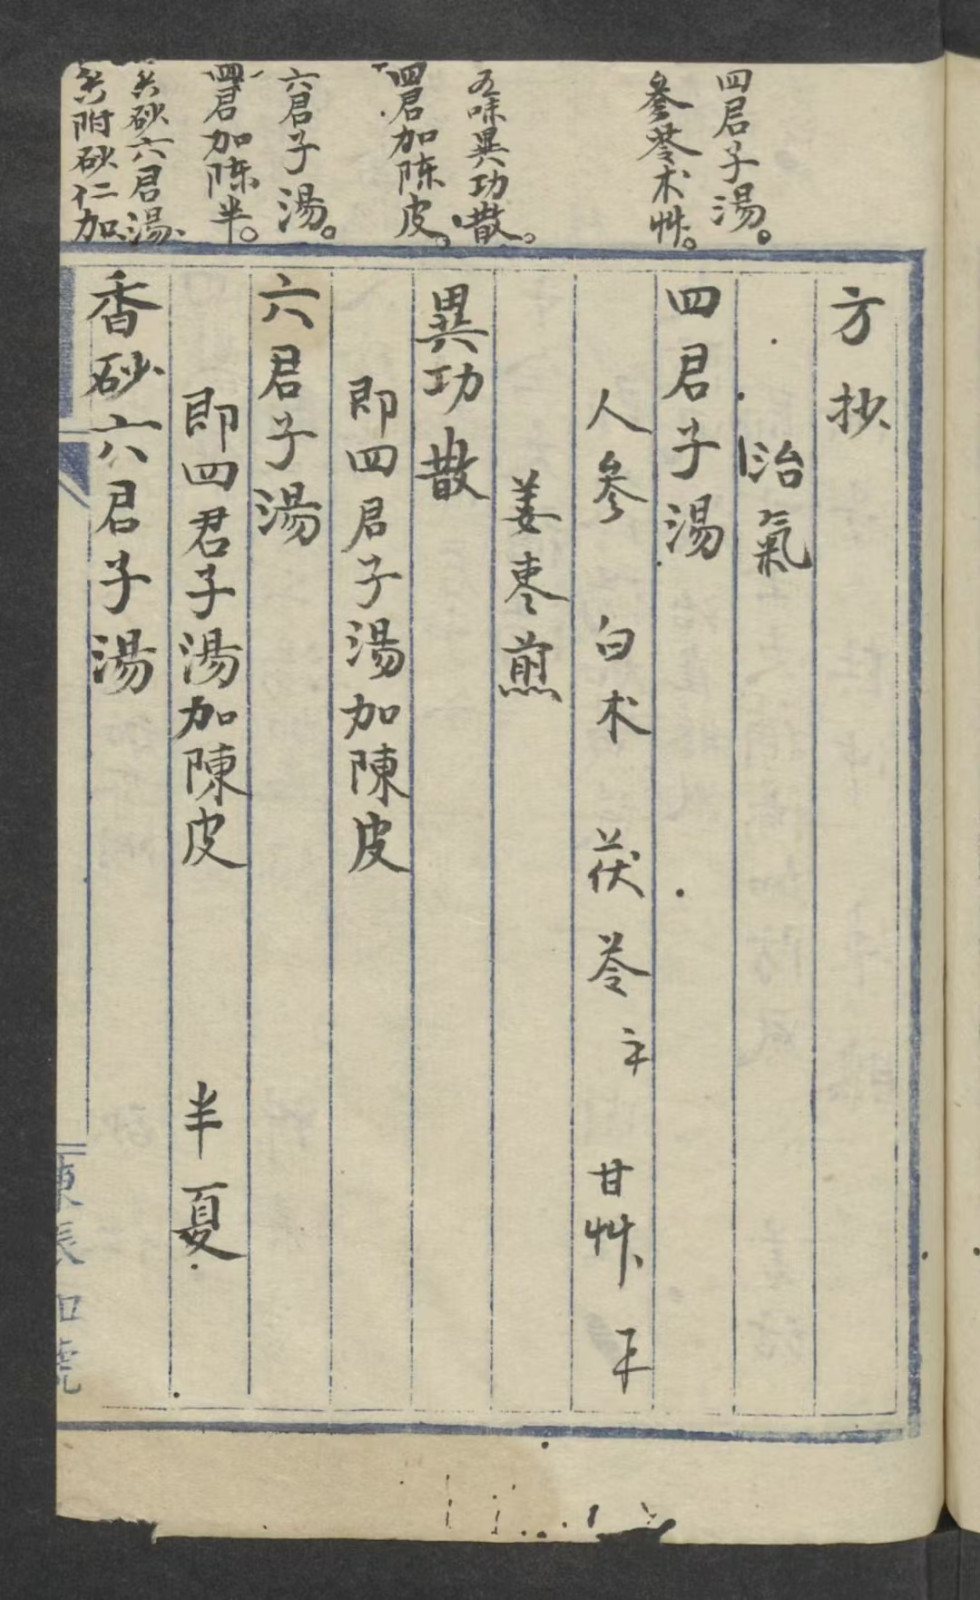 四君子湯。
參苓术艸。
五味異功散。
四君加陈皮。
六君子湯。
四君加陈半。
香砂六君湯
香附砂仁加
方抄
治氣
四君子湯
人參 白术 茯苓 甘艸
姜枣煎
異功散
即四君子湯加陳皮
六君子湯
即四君子湯加陳皮 半夏
香砂六君子湯